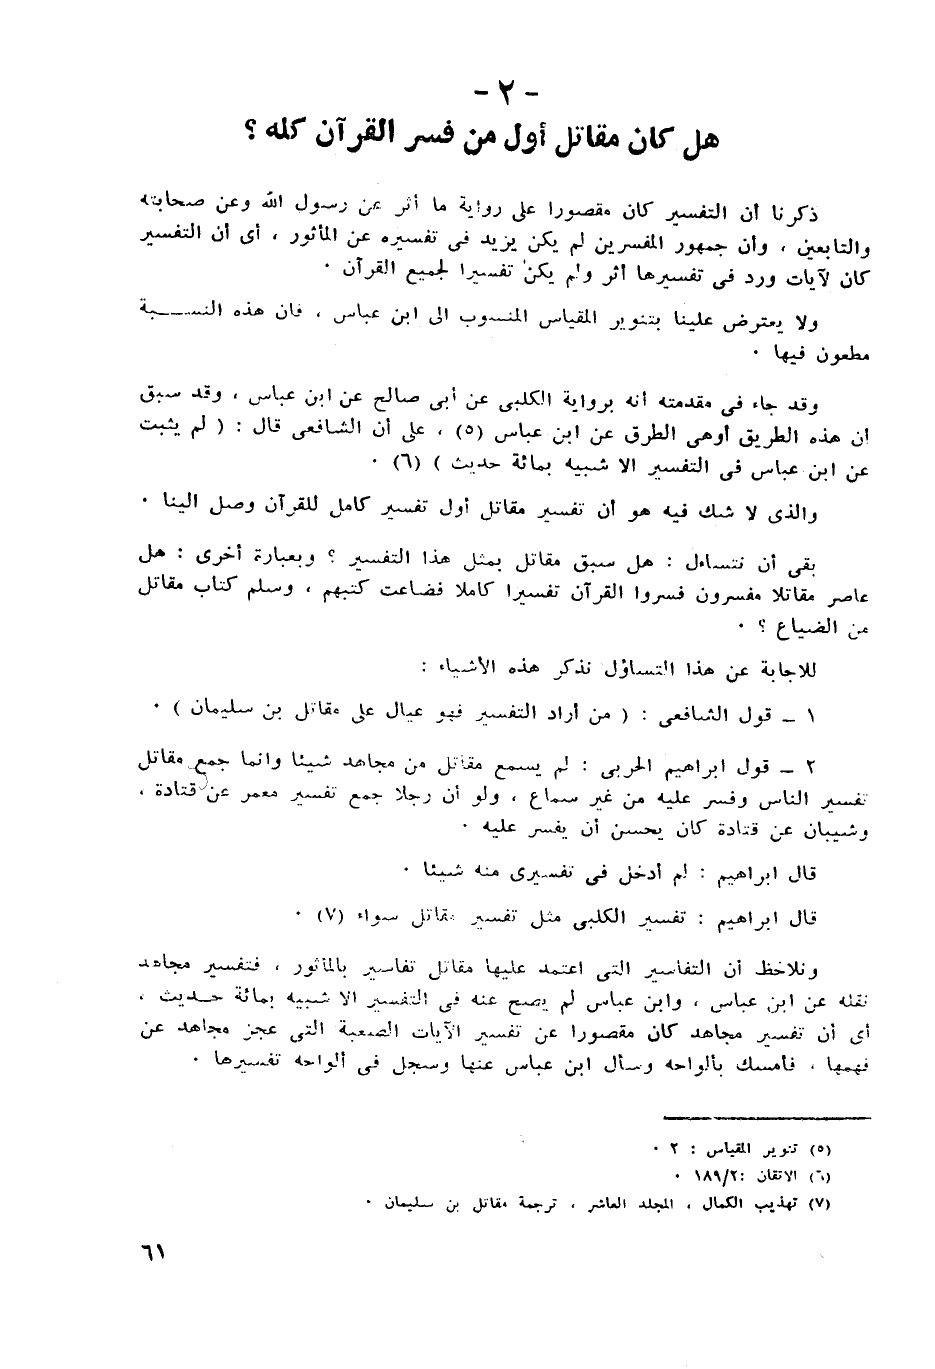 - ٢ -
هل كان مقاتل أول من فسر القرآن كله ؟
ذكرنا أن التفسير كان مقصورا على رواية ما أثر عن رسول الله وعن صحابته
والتابعين ، وأن جمهور المفسرين لم يكن يزيد فى تفسيره عن المأثور ، أى أن التفسير
كان لآيات ورد فى تفسيرها أثر ولم يكن تفسيرا لجميع القرآن ٠
ولا يعترض علينا بتنوير المقياس المنسوب الى ابن عباس ، فان هذه النســـبة
مطعون فيها ٠
وقد جاء فى مقدمته أنه برواية الكلبى عن أبى صالح عن ابن عباس ، وقد سبق
أن هذه الطريق أوهى الطرق عن ابن عباس (٥) ، على أن الشافعى قال : ( لم يثبت
عن ابن عباس فى التفسير الا شبيه بمائة حديث ) (٦) ٠
والذى لا شك فيه هو أن تفسير مقاتل أول تفسير كامل للقرآن وصل الينا ٠
بقى أن نتساءل : هل سبق مقاتل بمثل هذا التفسير ؟ وبعبارة أخرى : هل
عاصر مقاتلا مفسرون فسروا القرآن تفسيرا كاملا فضاعت كتبهم ، وسلم كتاب مقاتل
من الضياع ؟ ٠
للاجابة عن هذا التساؤل نذكر هذه الأشياء :
١ ــ قول الشافعى : ( من أراد التفسير فهو عيال على مقاتل بن سليمان ) ٠
٢ ــ قول ابراهيم الحربى : لم يسمع مقاتل من مجاهد شيئا وانما جمع مقاتل
تفسير الناس وفسر عليه من غير سماع ، ولو أن رجلا جمع تفسير معمر عن قتادة ،
وشيبان عن قتادة كان يحسن أن يفسر عليه ٠
قال ابراهيم : لم أدخل فى تفسيرى منه شيئا ٠
قال ابراهيم : تفسير الكلبى مثل تفسير مقاتل سواء (٧) ٠
ونلاحظ أن التفاسير التى اعتمد عليها مقاتل تفاسير بالمأثور ، فتفسير مجاهد
نقله عن ابن عباس ، وابن عباس لم يصح عنه فى التفسير الا شبيه بمائة حــديث ،
أى أن تفسير مجاهد كان مقصورا عن تفسير الآيات الصعبة التى عجز مجاهد عن
فهمها ، فأمسك بألواحه وسأل ابن عباس عنها وسجل فى ألواحه تفسيرها ٠
(٥) تنوير المقياس : ٢ ٠
(٦) الاتقان :١٨٩/٢ ٠
(٧) تهذيب الكمال ، المجلد العاشر ، ترجمة مقاتل بن سليمان ٠
٦١